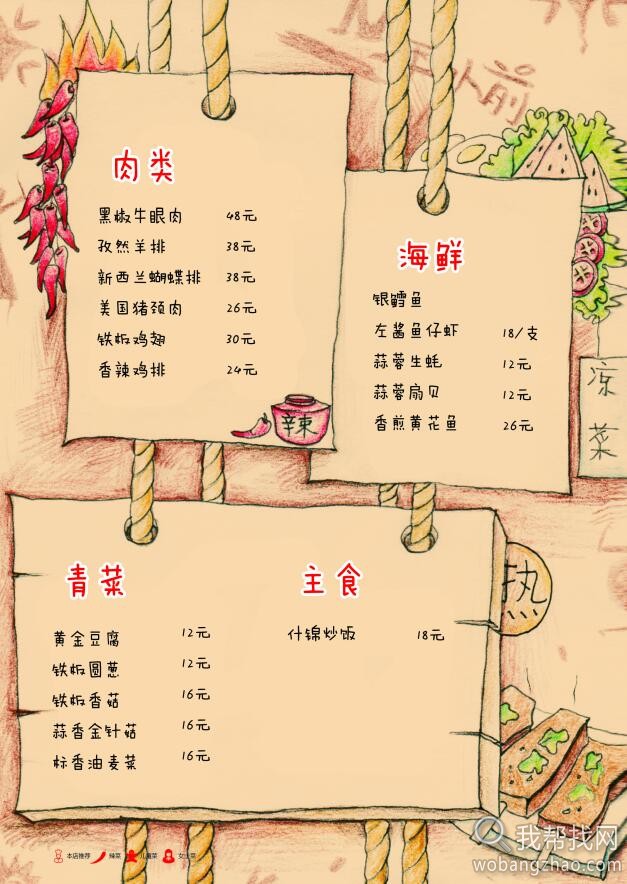 肉类
黑椒牛眼肉 48元
孜然羊排 38元
新西兰蝴蝶排 38元
美国猪颈肉 26元
铁板鸡翅 30元
香辣鸡排 24元
辣
前
海鲜
银鳕鱼
左酱鱼仔虾 18/支
蒜蓉生蚝 12元
蒜蓉扇贝 12元
香煎黄花鱼 26元
凉菜
青菜
黄金豆腐 12元
铁板圆葱 12元
铁板香菇 16元
蒜香金针菇 16元
标香油麦菜 16元
主食
什锦炒饭 18元
本店推荐 辣菜 儿童菜 女士菜
我帮找网
wobangzhao.com